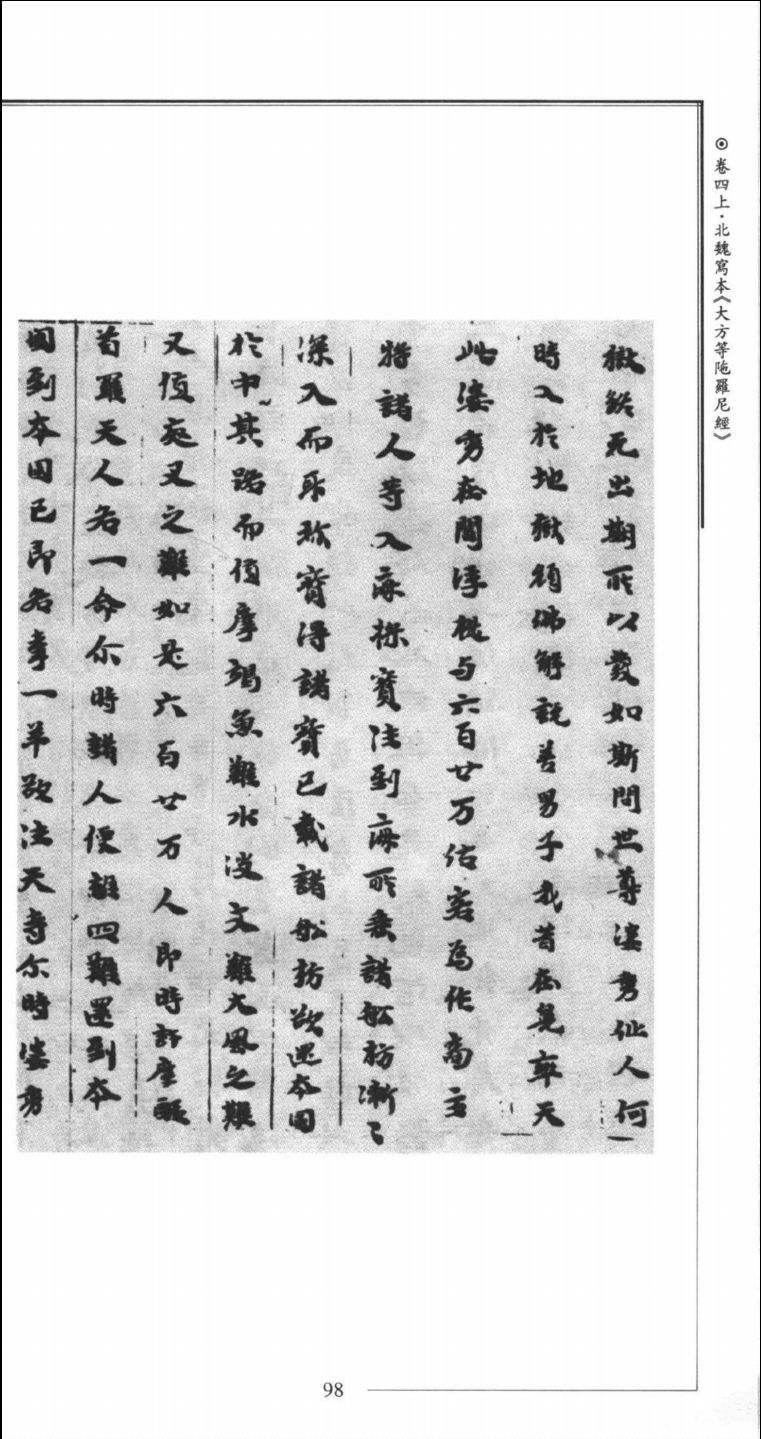 ◉卷四上·北魏寫本《大方等陁羅尼經》
獄終无出期所以發如斯問世尊婆㔟仙人何
時入於地獄願佛解說善男子我昔在兜率天
此婆㔟在閻浮提与六百廿万估客為作商主
將諸人等入海採寶往到海所乗諸舩舫漸〻
深入而取珎寶得諸寶已載諸舩舫欲還本国
於中其路而值摩竭魚難水波之難大風之難
又值夜叉之難如是六百廿万人即時許摩醯
首羅天人各一命尓時諸人便離四難還到本
国到本国已即各牽一羊欲往天寺尓時婆㔟
98